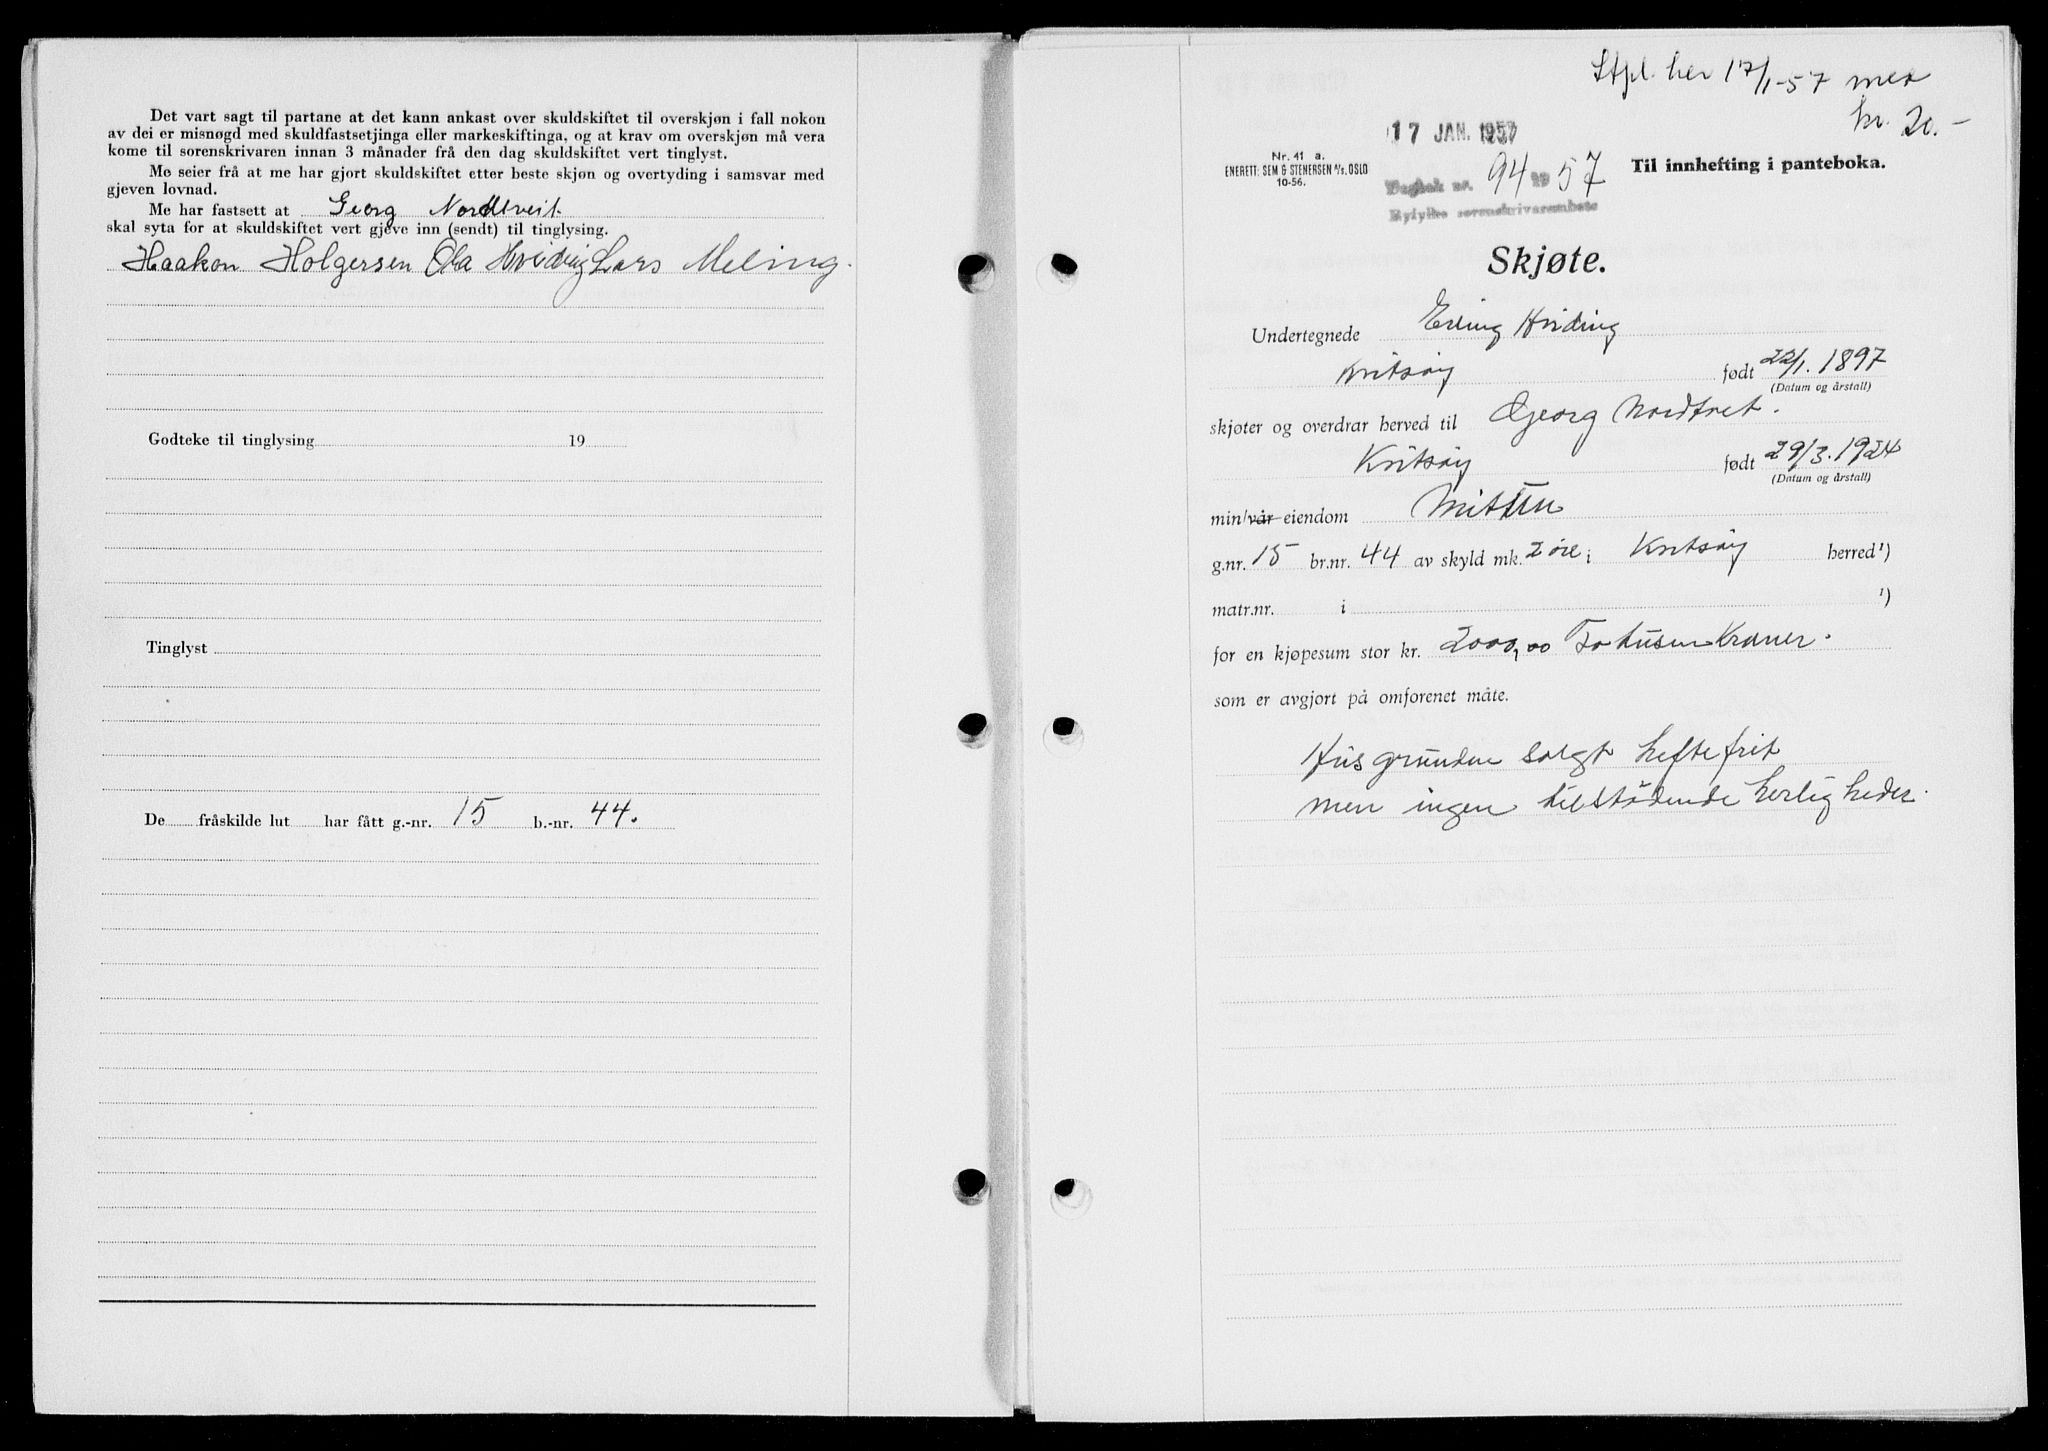 Det vart sagt til partane at det kann ankast over skuldskiftet til overskjøn i fall nokon
av dei er misnøgd med skuldfastsetjinga eller markeskiftinga, og at krav om overskjøn må vera
kome til sorenskrivaren innan 3 månader frå den dag skuldskiftet vert tinglyst.
Me seier frå at me har gjort skuldskiftet etter beste skjøn og overtyding i samsvar med
gjeven lovnad.
Me har fastsett at Georg Nordtveit
skal syta for at skuldskiftet vert gjeve inn (sendt) til tinglysing.
Haakon Holgersen Ola Hviding Lars Meling.
Godteke til tinglysing 19
Tinglyst
De fråskilde lut har fått g.-nr. 15 b.-nr. 44.
Stpl. her 17/1-57 med
kr. 20.-
17 JAN. 1957
Nr. 41 a.
ENERETT: SEM & STENERSEN A/S. OSLO
10-56.
Dagbok nr. 94 1957
Ryfylke sorenskrivarembete
Til innhefting i panteboka.
Skjøte.
Undertegnede Erling Hviding
Kvitsøy født 22/1. 1897
(Datum og årstall)
skjøter og overdrar herved til Georg Nordtvet.
Kvitsøy født 29/3. 1924
(Datum og årstall)
min/vår eiendom
g.nr. 15 br.nr. 44 av skyld mk. 2 øre i Kvitsøy herred ¹)
matr.nr. i ¹)
for en kjøpesum stor kr. 2000,00 Totusen Kroner.
som er avgjort på omforenet måte.
Husgrunden solgt heftefrit
men ingen tilstødende herligheder.